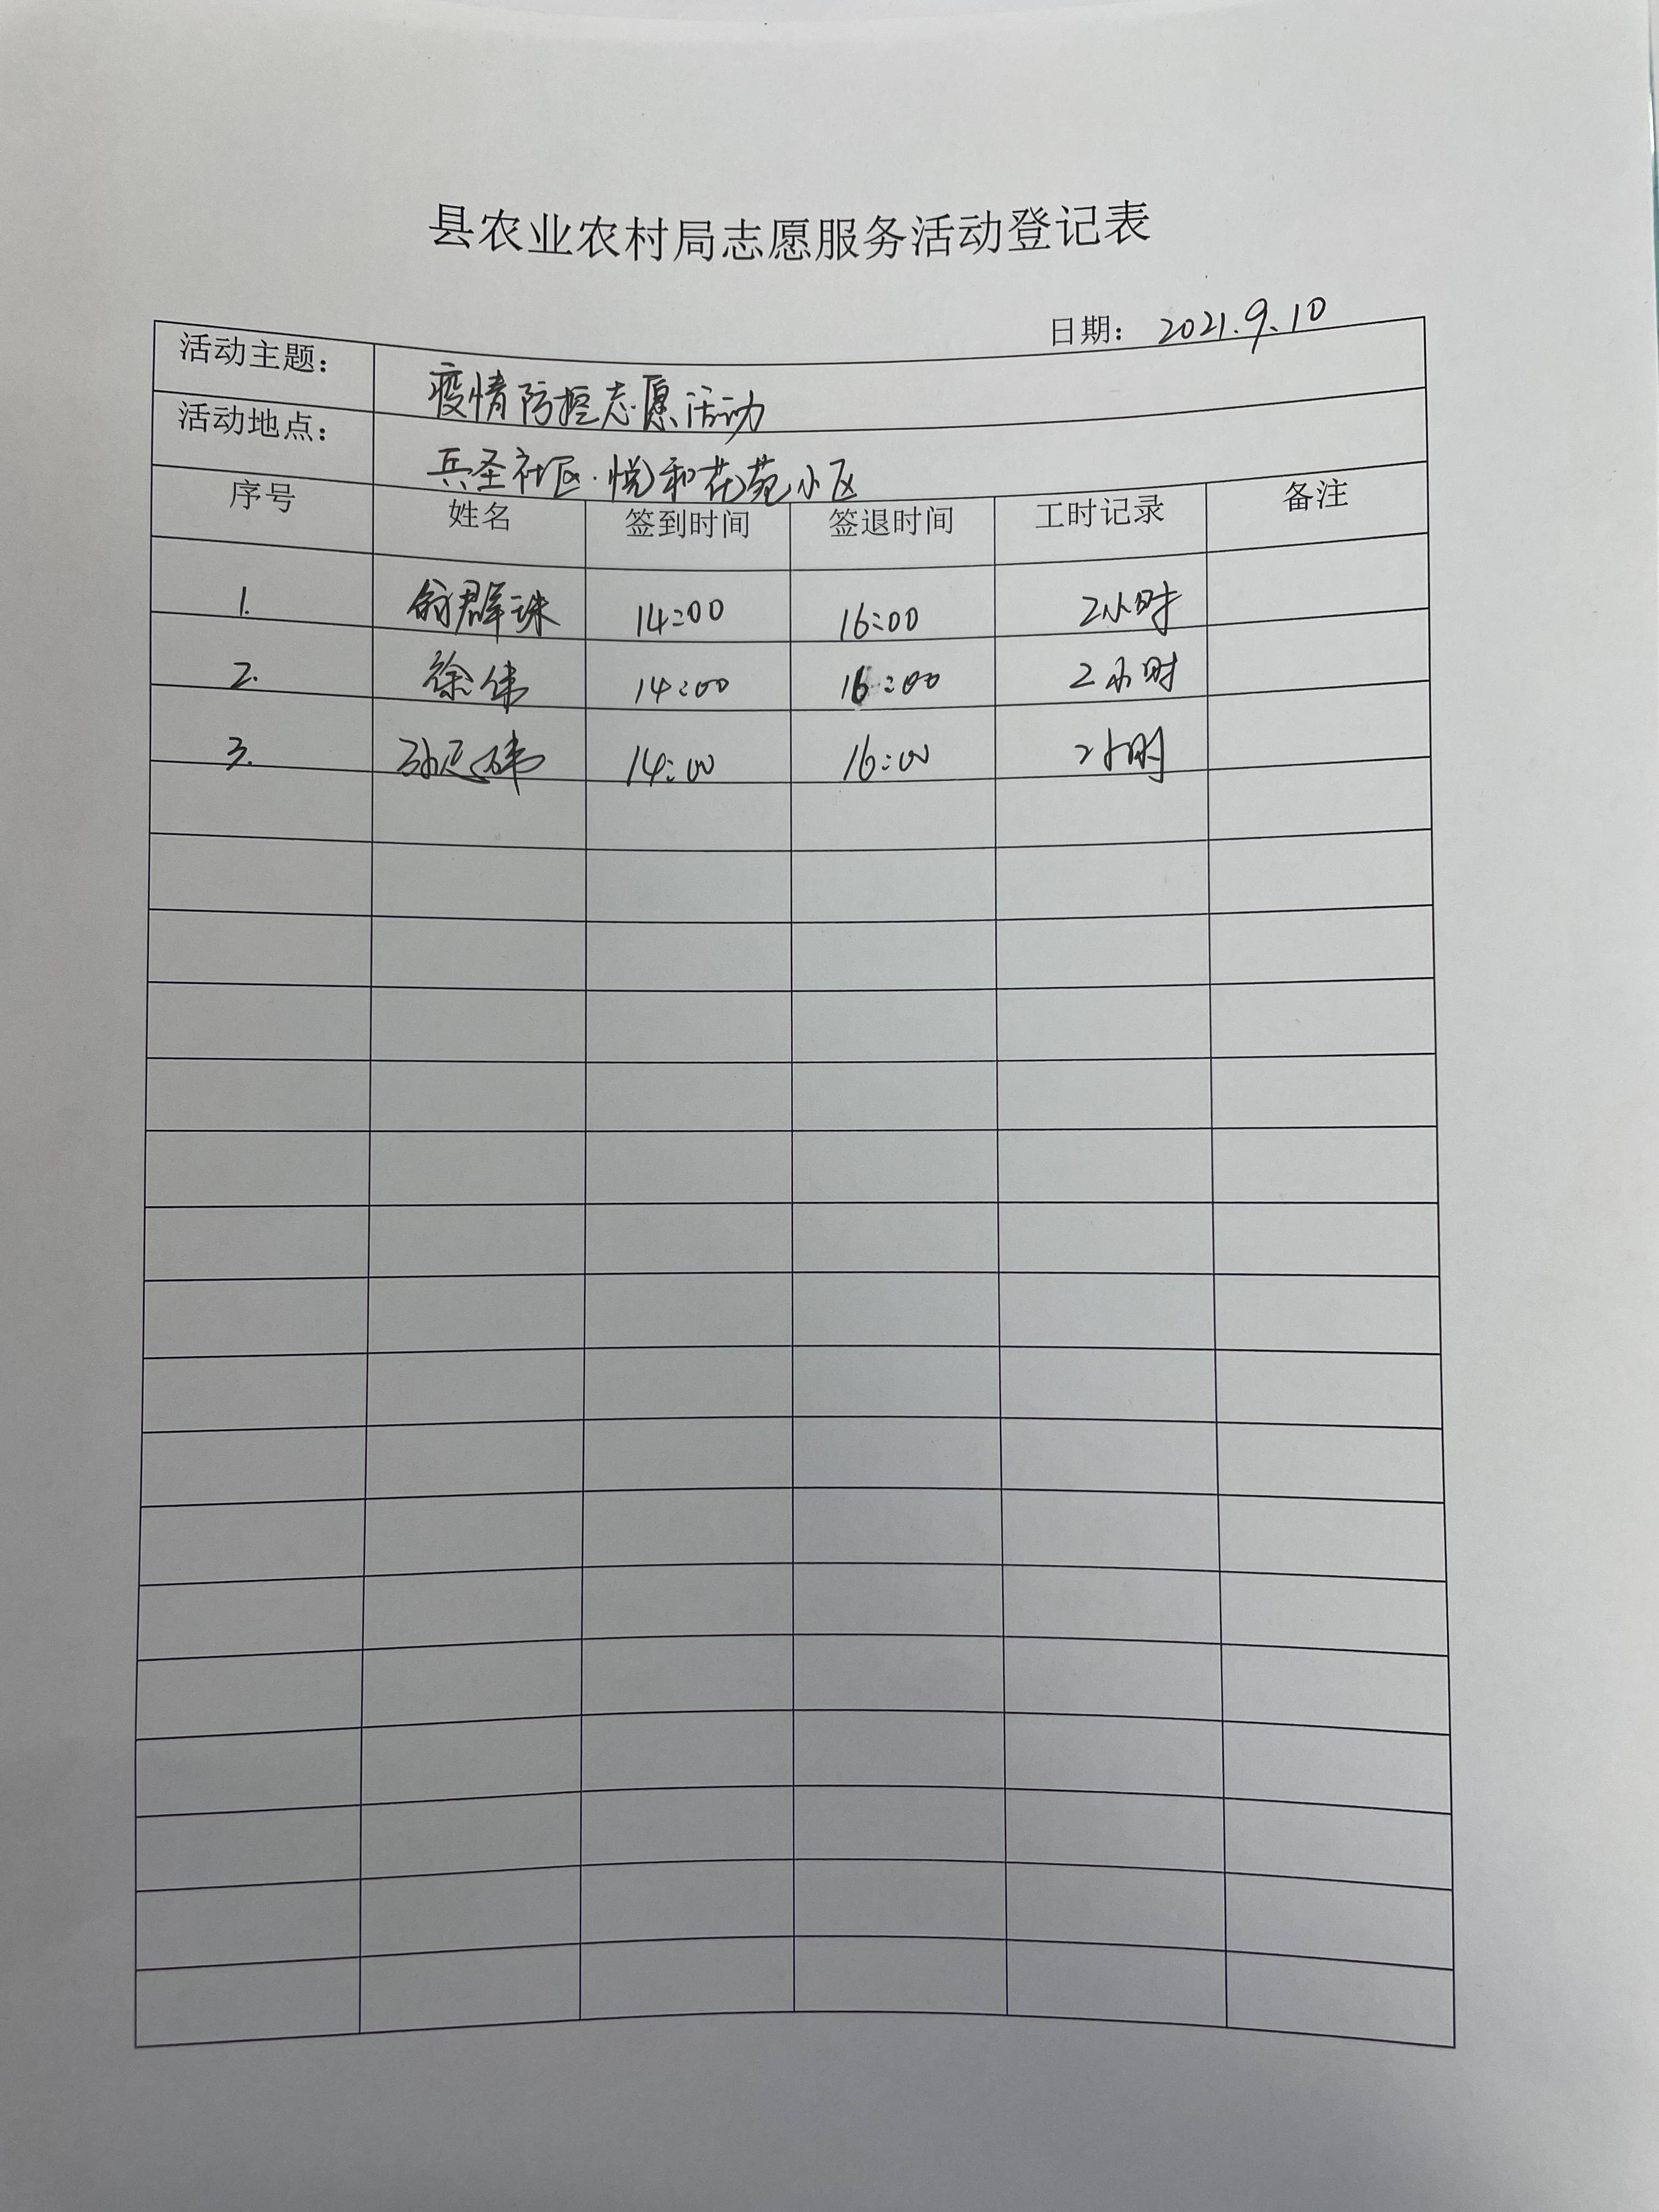 县农业农村局志愿服务活动登记表
日期： 2021.9.10
活动主题： 疫情防控志愿活动
活动地点： 兵圣社区·悦和花苑小区
序号 姓名 签到时间 签退时间 工时记录 备注
1. 群珠 14:00 16:00 2小时
2. 徐伟 14:00 16:00 2小时
3. 孙 14:00 16:00 2小时